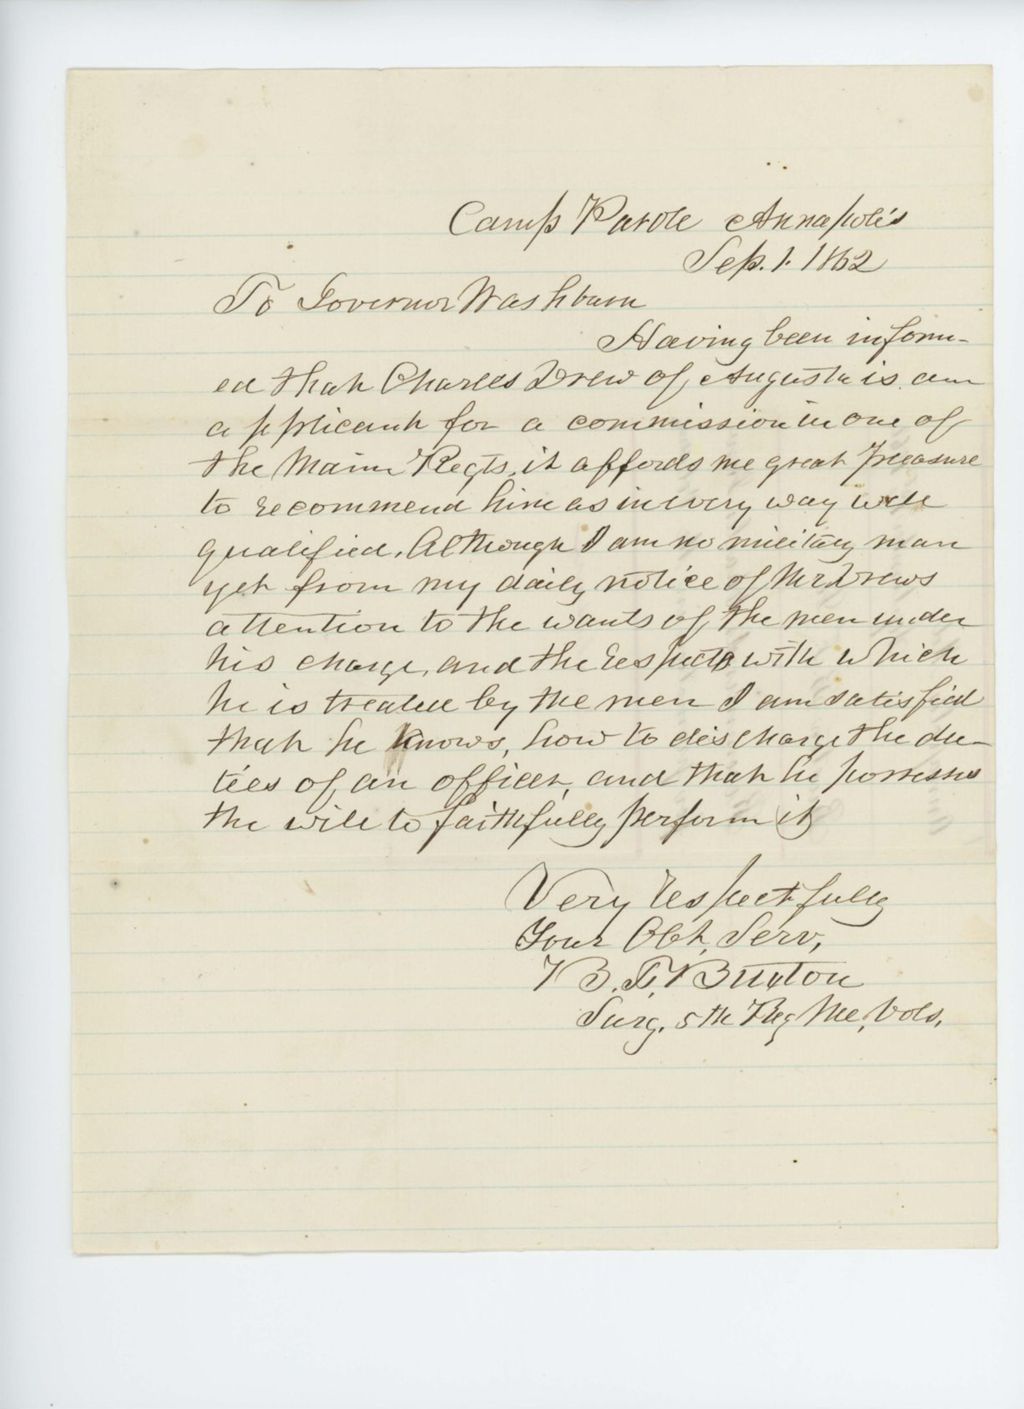 Camp Parole Annapolis
Sep. 1. 1862
To Governor Washburn
Having been inform-
ed that Charles Drew of Augusta is an
applicant for a commission in one of
the Maine Regts, it affords me great pleasure
to recommend him as in every way well
qualified. Although I am no military man
yet from my daily notice of Mr Drews
attention to the wants of the men under
his charge, and the respect with which
he is treated by the men I am satisfied
that he knows, how to discharge the du-
ties of an officer, and that he possesses
the will to faithfully perform it
Very respectfully
Your Obt. Serv,
B. F. Buxton
Surg. 5th Reg Me, Vols.